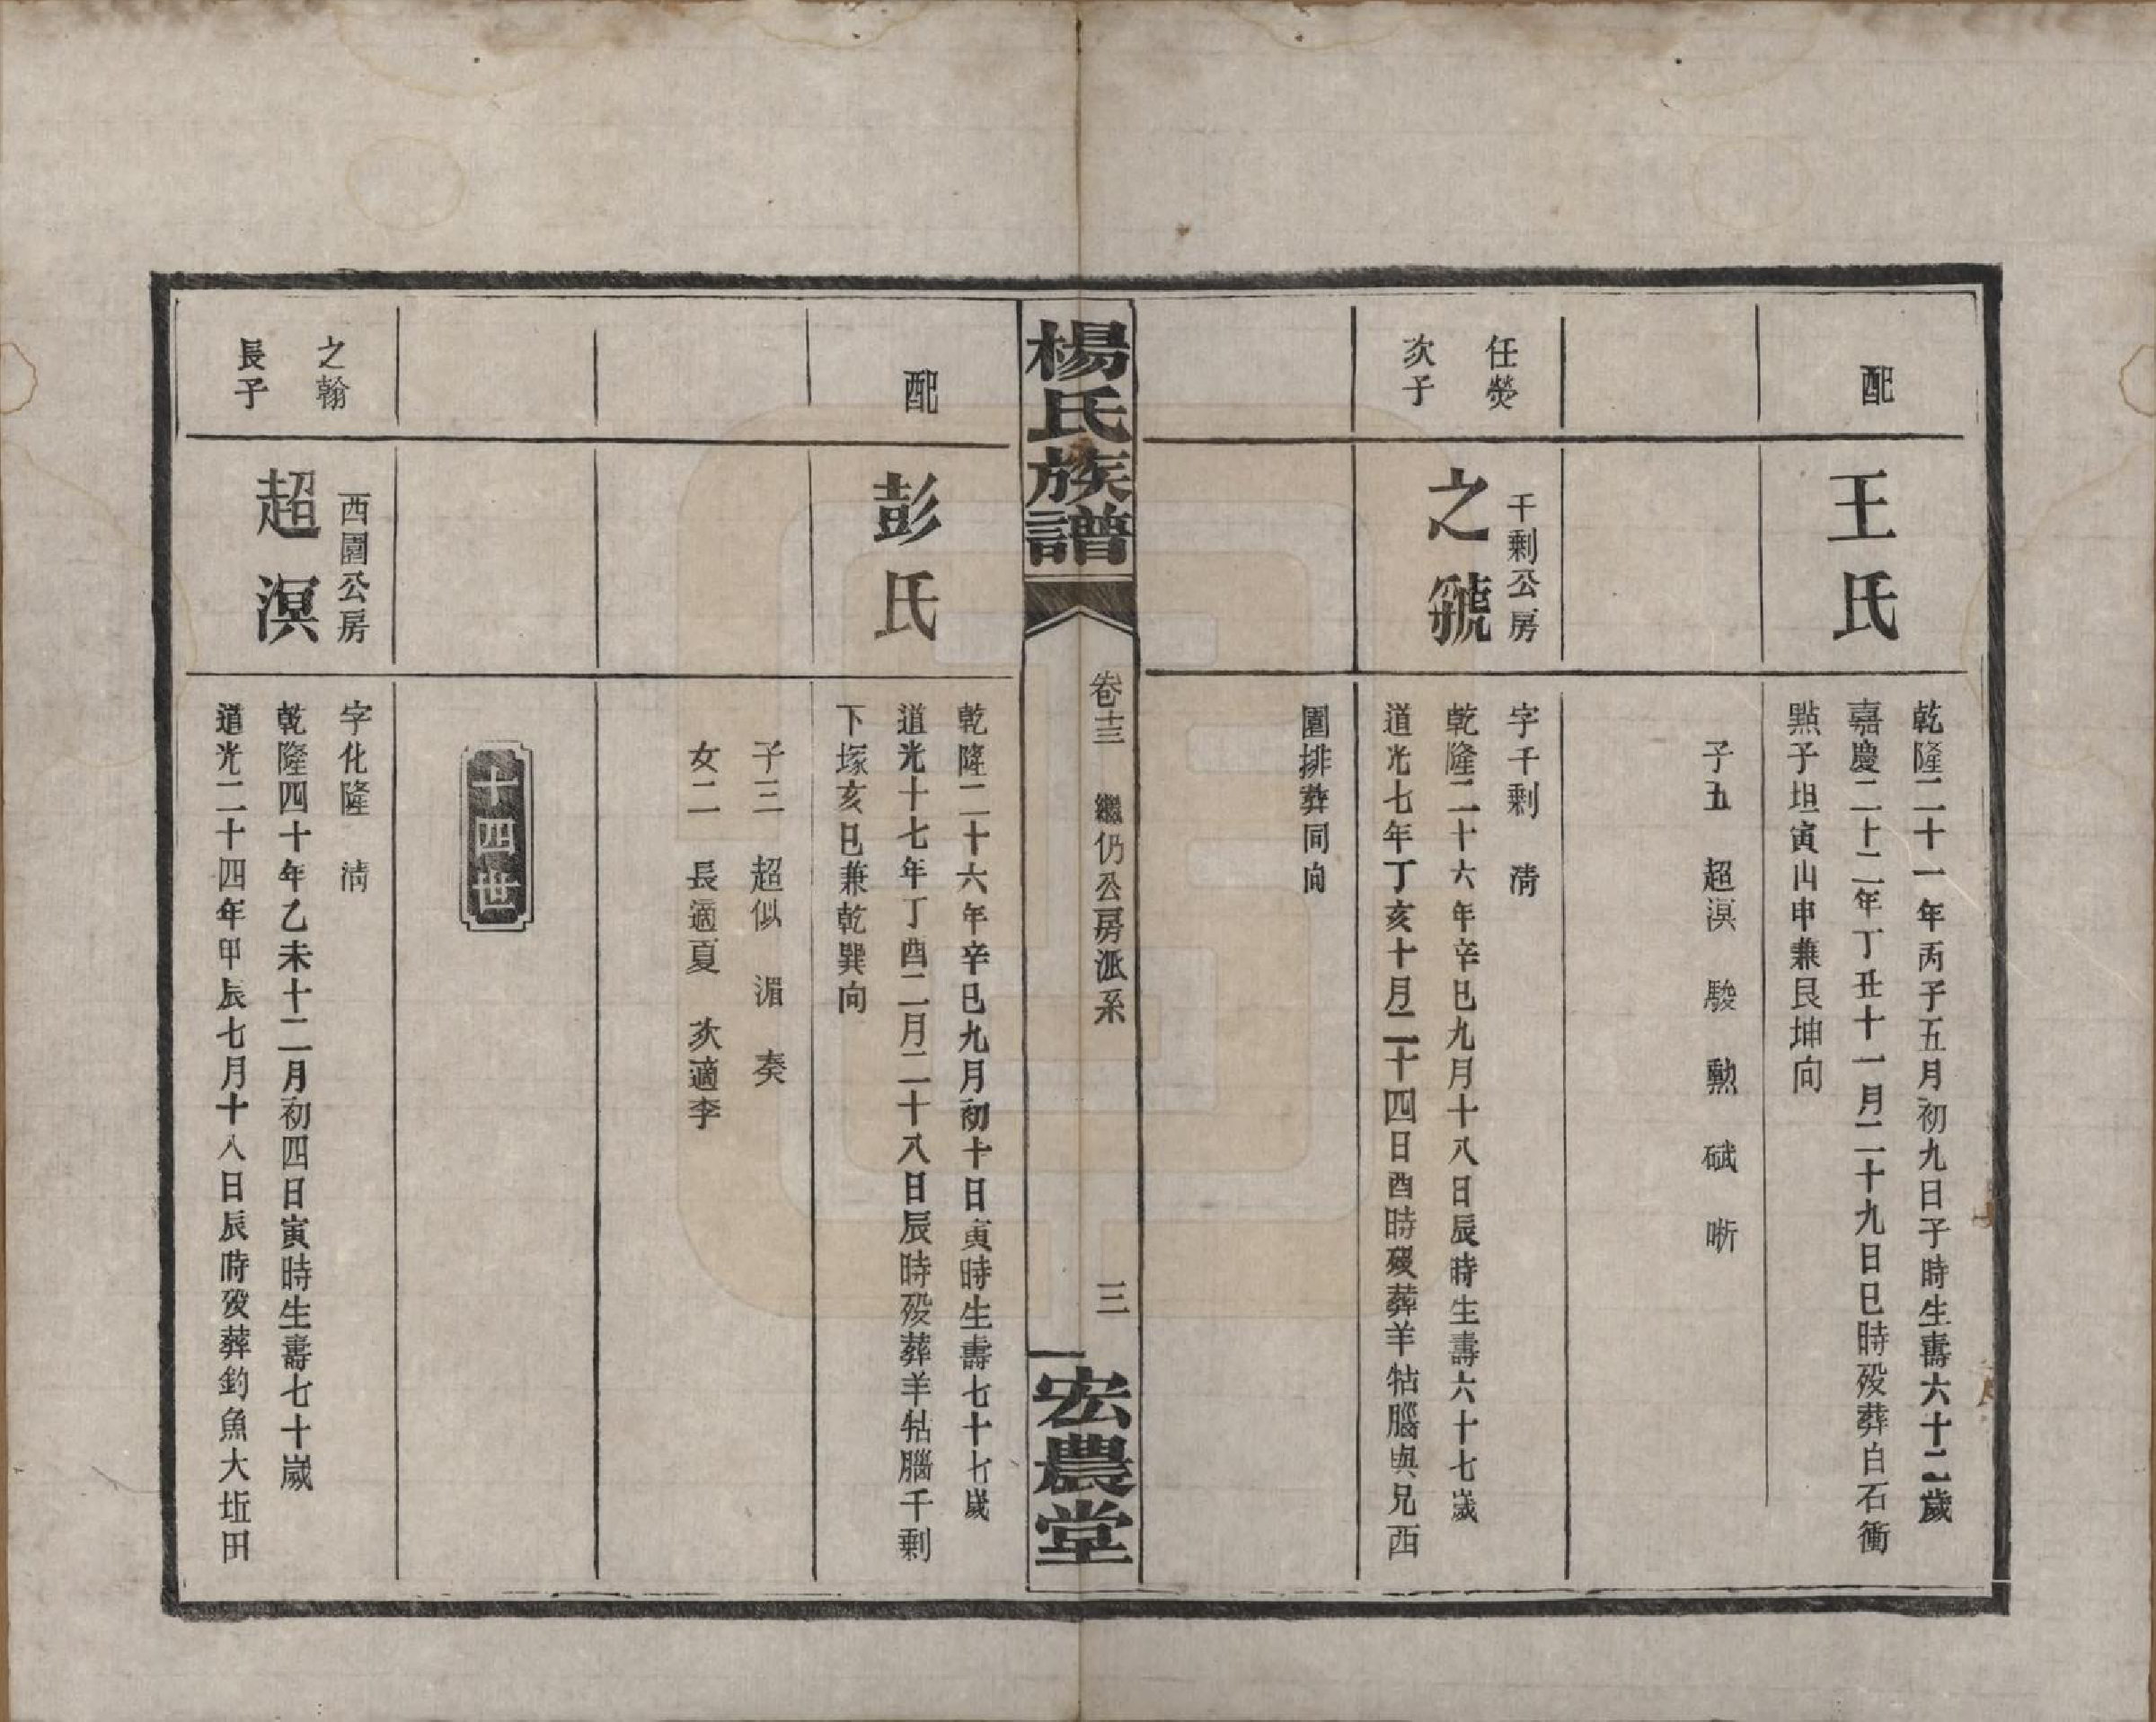 配
王氏
乾隆二十一年丙子五月初九日子時生壽六十二歲
嘉慶二十二年丁丑十一月二十九日巳時殁葬白石衝
點子坦寅山申兼艮坤向
子五　超溟　駿　勲　碔　晰
任熒
次子
千剩公房
之號
字千剩　清
乾隆二十六年辛巳九月十八日辰時生壽六十七歲
道光七年丁亥十月二十四日酉時殁葬羊牯腦與兄西
園排葬同向
楊氏族譜
卷十三　繼仍公房派系
三
宏農堂
配
彭氏
乾隆二十六年辛巳九月初十日寅時生壽七十七歲
道光十七年丁酉二月二十八日辰時殁葬羊牯腦千剩
下塚亥巳兼乾巽向
子三　超似　湄　奏
女二　長適夏　次適李
十四世
之翰
長子
西園公房
超溟
字化隆　清
乾隆四十年乙未十二月初四日寅時生壽七十歲
道光二十四年甲辰七月十八日辰時殁葬釣魚大坵田